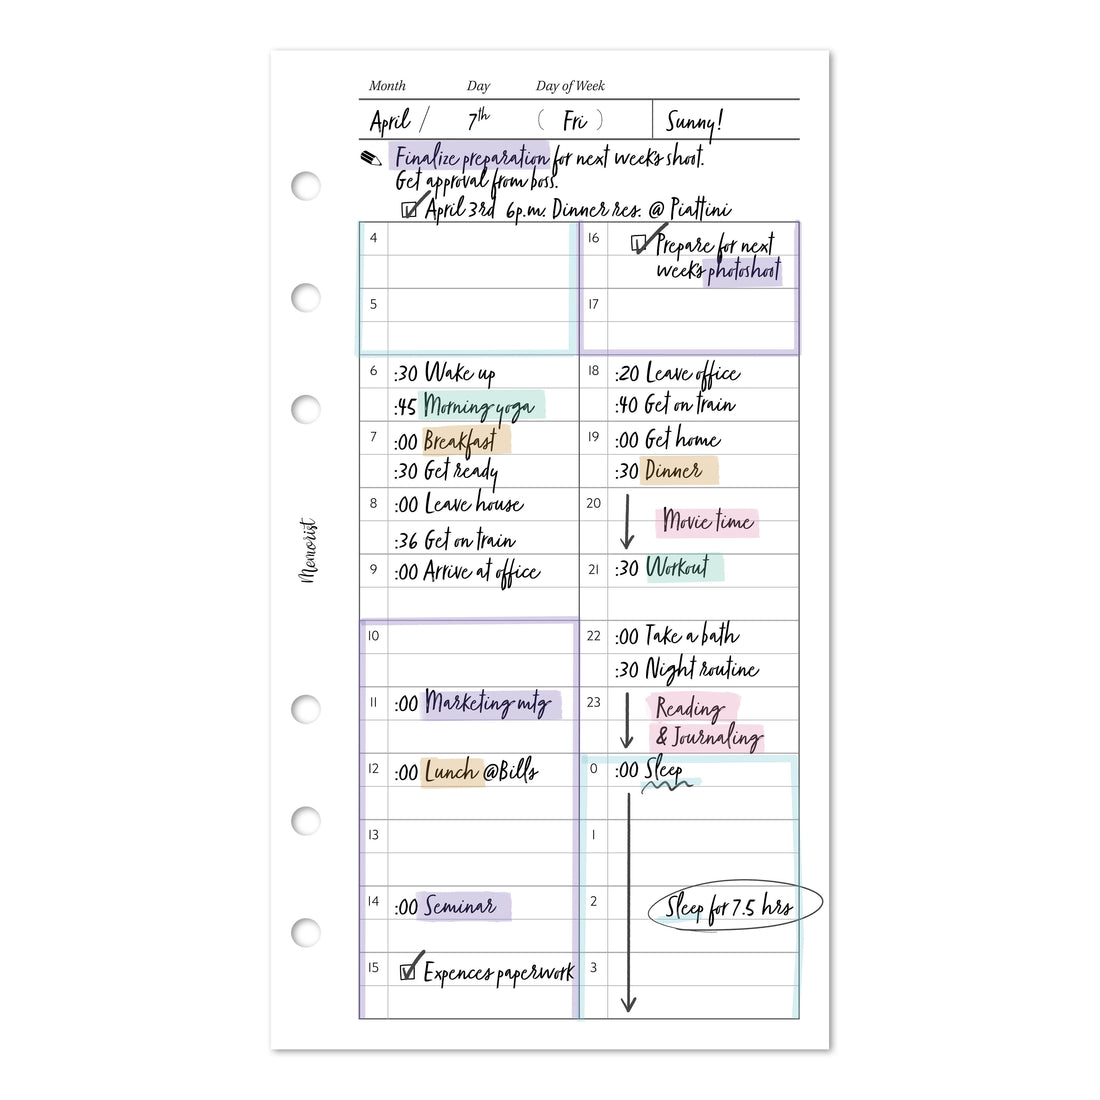 Month Day Day of Week
April / 7th ( Fri ) Sunny!
Finalize preparation for next week's shoot.
Get approval from boss.
April 3rd 6p.m. Dinner res. @ Piattini
4
5
6 :30 Wake up
:45 Morning yoga
7 :00 Breakfast
:30 Get ready
8 :00 Leave house
:36 Get on train
9 :00 Arrive at office
10
11 :00 Marketing mtg
12 :00 Lunch @Bills
13
14 :00 Seminar
15 Expences paperwork
16 Prepare for next
week's photoshoot
17
18 :20 Leave office
:40 Get on train
19 :00 Get home
:30 Dinner
20
Movie time
21 :30 Workout
22 :00 Take a bath
:30 Night routine
23 Reading
& Journaling
0 :00 Sleep
1
2 Sleep for 7.5 hrs
3
Memorist